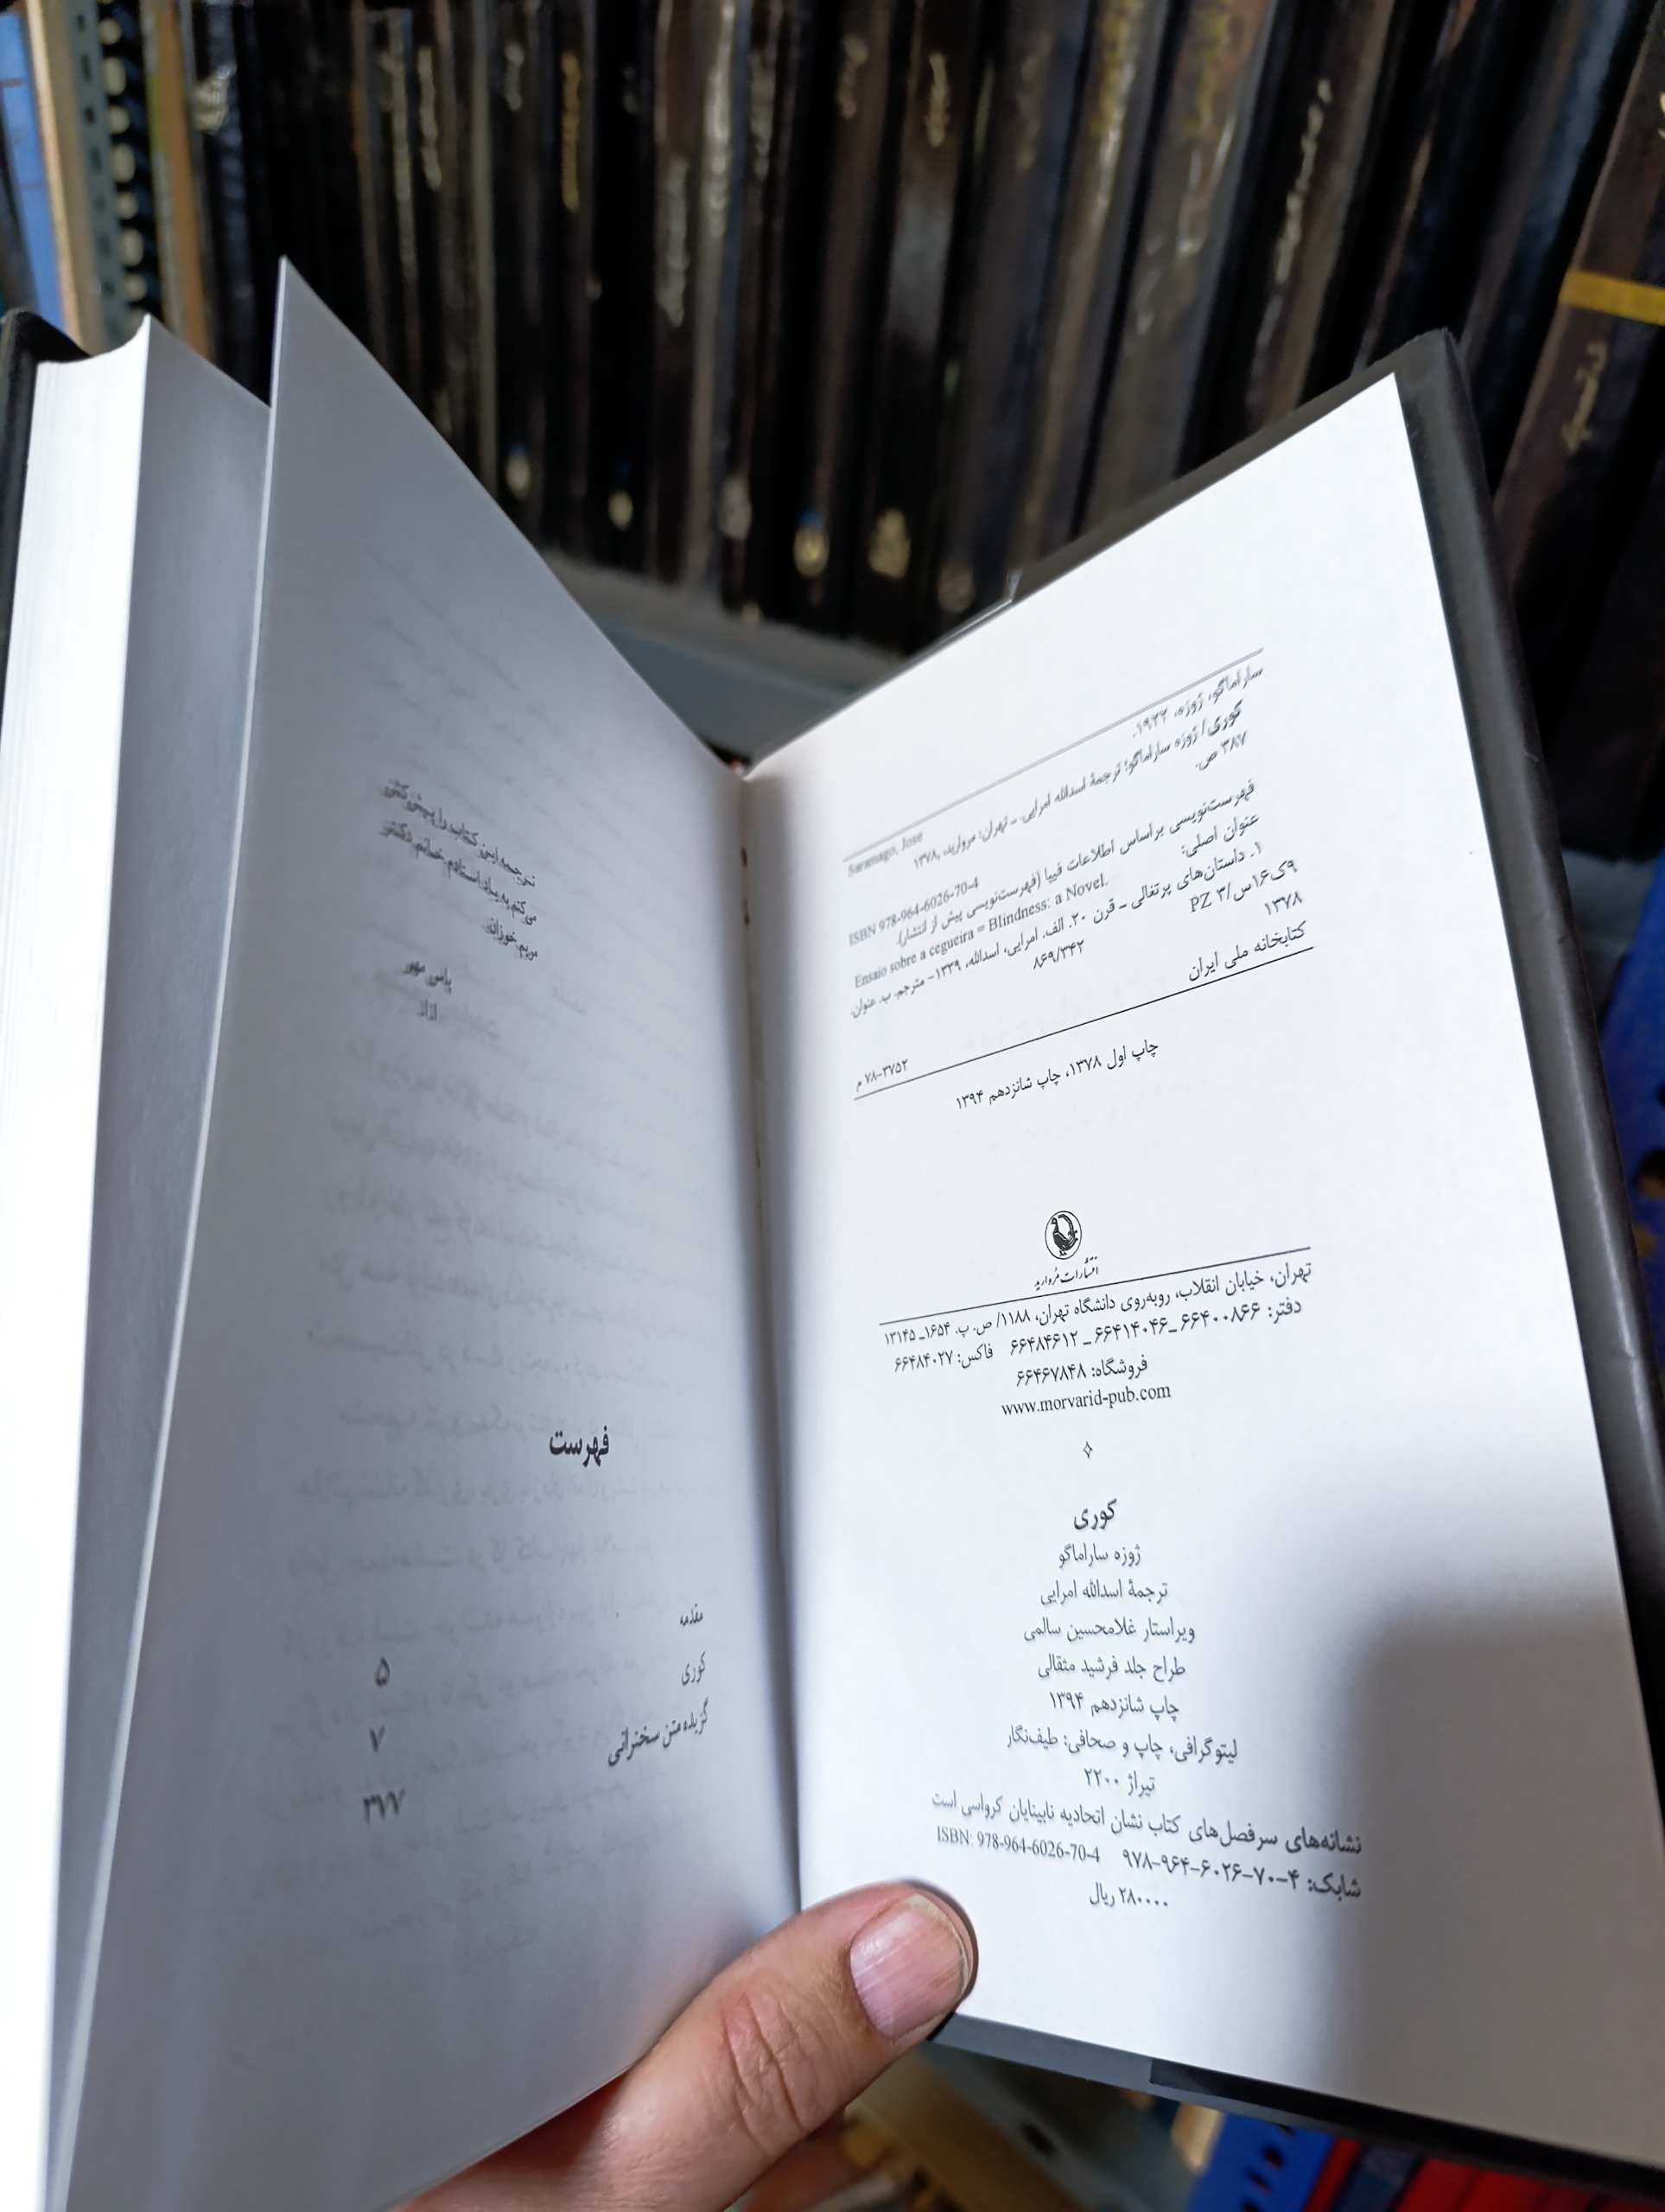 ساراماگو، ژوزه، ۱۹۲۲.
Saramago, Jose
کوری / ژوزه ساراماگو؛ ترجمهٔ اسدالله امرایی. ـ تهران: مروارید، ۱۳۷۸.
۳۸۷ ص.
ISBN 978-964-6026-70-4
فهرست‌نویسی براساس اطلاعات فیپا (فهرست‌نویسی پیش از انتشار).
عنوان اصلی:
Ensaio sobre a cegueira = Blindness: a Novel.
۱. داستان‌های پرتغالی ـ قرن ۲۰. الف. امرایی، اسدالله، ۱۳۳۹– مترجم. ب. عنوان.
۹ک۱۶س/۳ PZ
۸۶۹/۳۴۲
۱۳۷۸
کتابخانه ملی ایران
۷۸–۳۷۵۲ م
چاپ اول ۱۳۷۸، چاپ شانزدهم ۱۳۹۴
انتشارات مروارید
تهران، خیابان انقلاب، روبه‌روی دانشگاه تهران، ۱۱۸۸/ ص. پ. ۱۶۵۴ـ ۱۳۱۴۵
دفتر: ۶۶۴۰۰۸۶۶ ـ ۶۶۴۱۴۰۴۶ ـ ۶۶۴۸۴۶۱۲ فاکس: ۶۶۴۸۴۰۲۷
فروشگاه: ۶۶۴۶۷۸۴۸
www.morvarid-pub.com
کوری
ژوزه ساراماگو
ترجمهٔ اسدالله امرایی
ویراستار غلامحسین سالمی
طراح جلد فرشید مثقالی
چاپ شانزدهم ۱۳۹۴
لیتوگرافی، چاپ و صحافی: طیف‌نگار
تیراژ ۲۲۰۰
نشانه‌های سرفصل‌های کتاب نشان اتحادیه نابینایان کرواسی است
شابک: ۴–۷۰–۶۰۲۶–۹۶۴–۹۷۸ ISBN: 978-964-6026-70-4
۲۸۰۰۰۰ ریال
ترجمه این کتاب را پیش‌کش
می‌کنم به یاد استادم خانم دکتر
مریم خوزان
یاس مهر
ا.ا.
فهرست
مقدمه ۵
کوری ۷
گزیده متن سخنرانی ۳۷۷